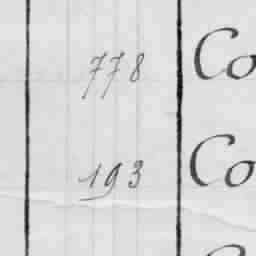 778 Co
193 Co